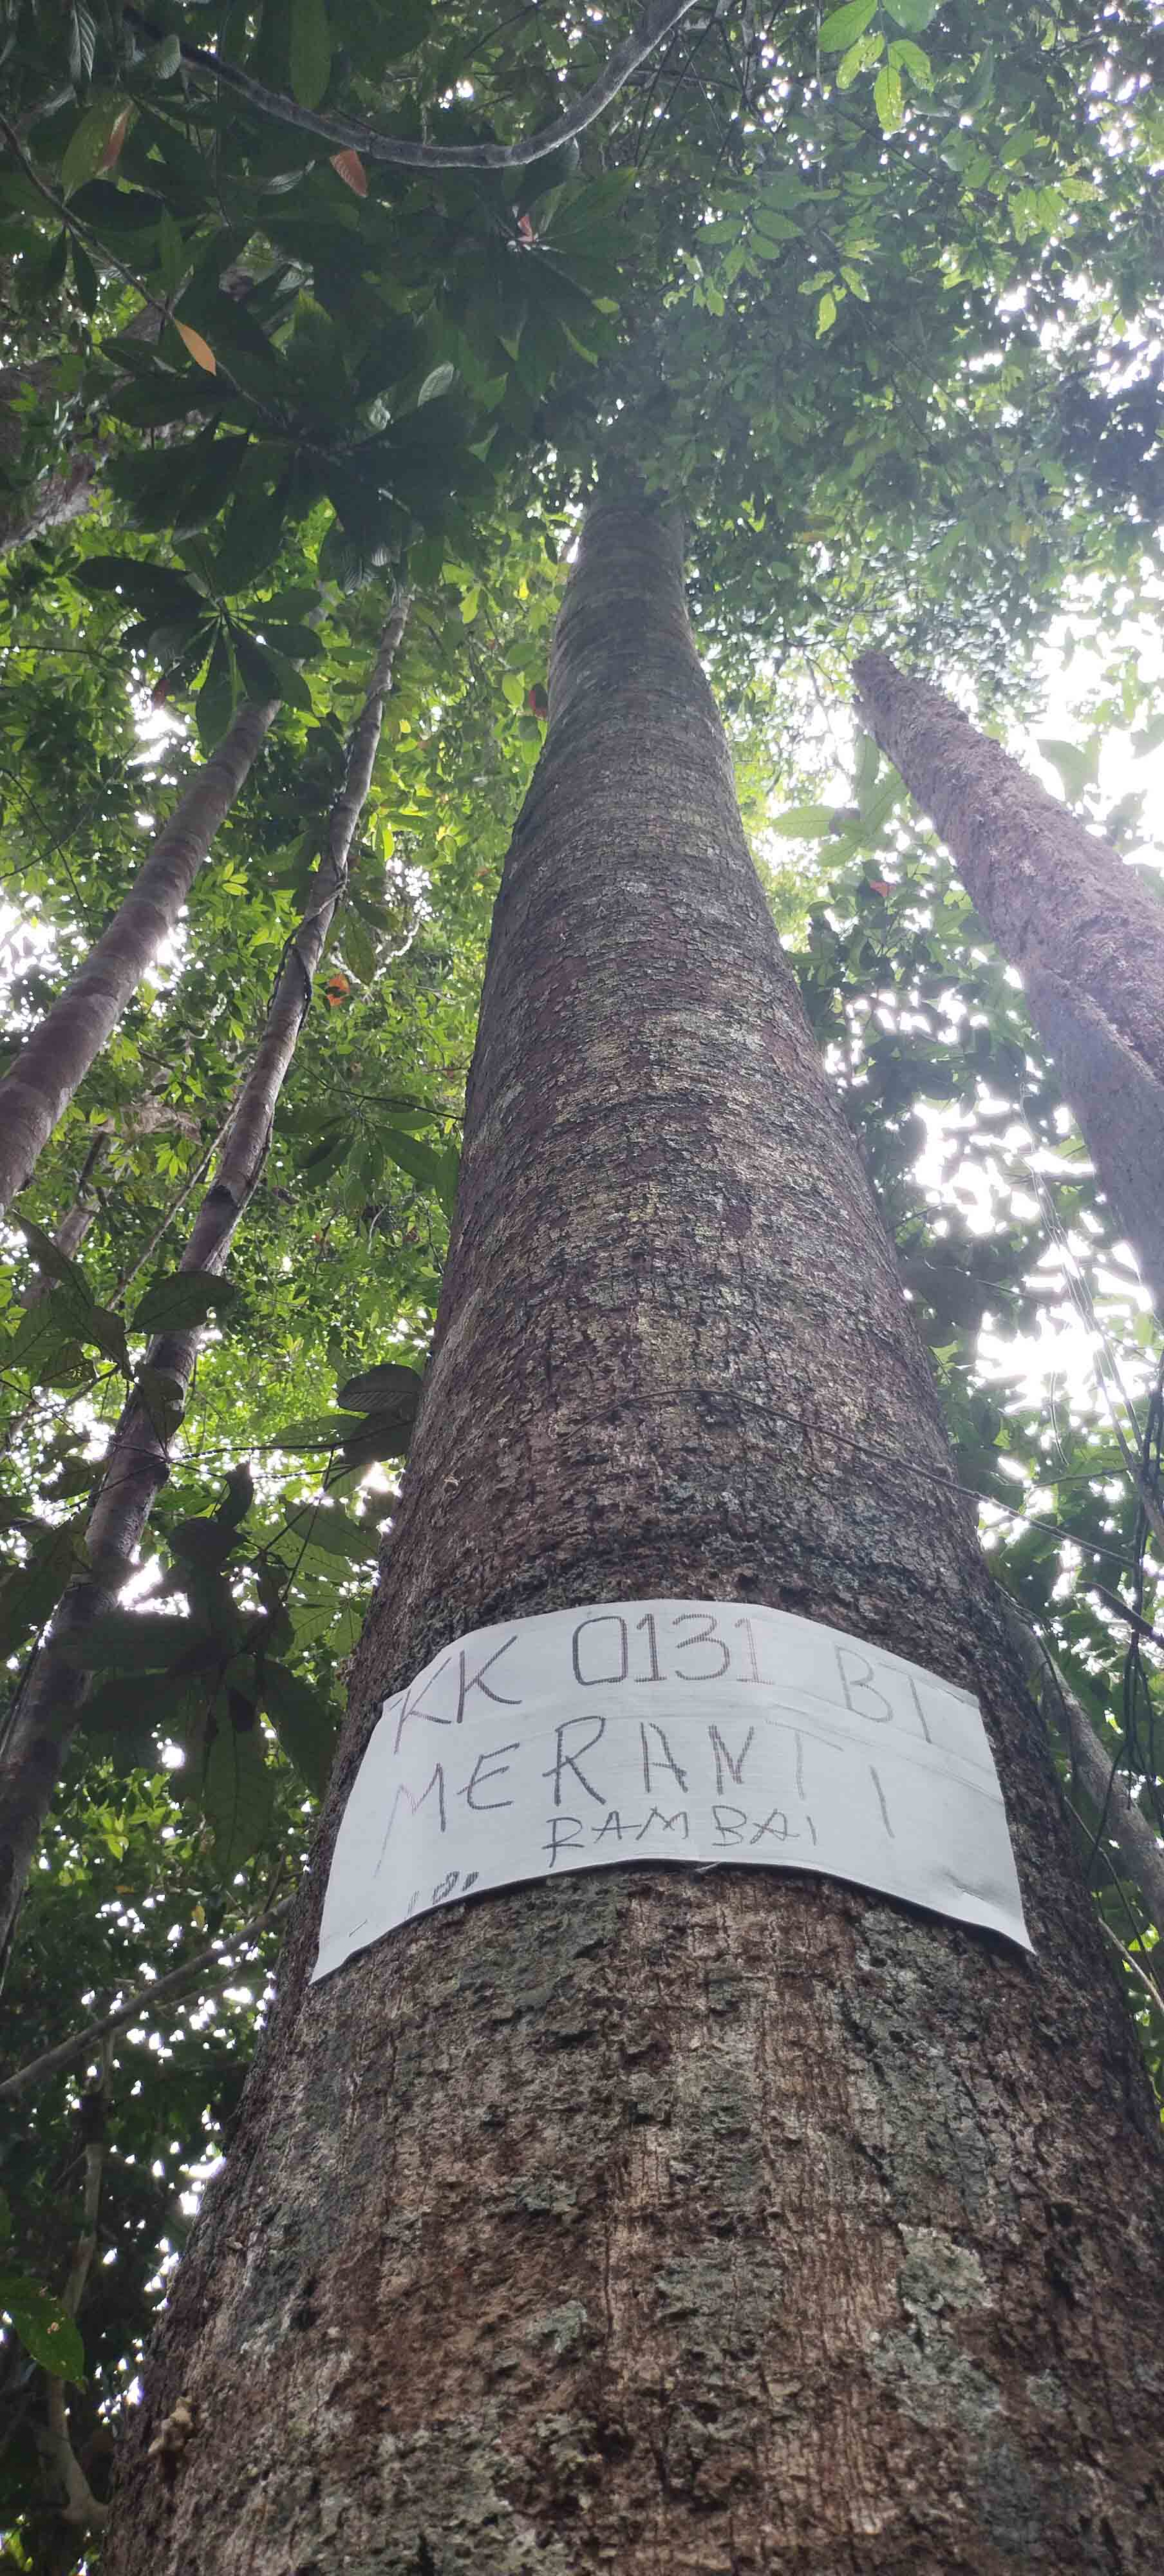 KK 0131 BT
MERANTI
RAMBAI